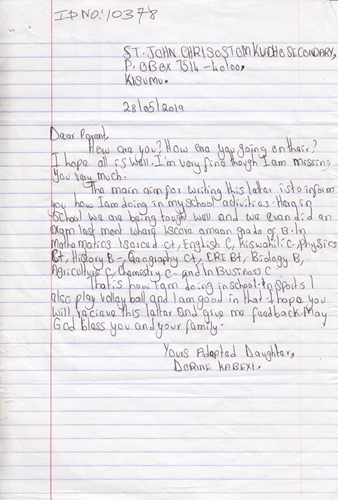 ID NO: 10378
ST. JOHN CHRISOSTOM KUDHO SECONDARY,
P. O BOX 7514 - 40100,
KISUMU.
28/05/2019
Dear Parent,
How are you? How are you going on their?
I hope all is well. I'm very fine though I am missing
you very much.
The main aim for writing this letter is to inform
you how I am doing in my school activities. Here in
school we are being taught well and we even did an
exam last ment where I score a mean grade of B- In
Mathematics I scored C+, English C, Kiswahili C, physics
C+, History B-, Geography C+, CRE B+, Biology B,
Agriculture C, Chemistry C- and In Business C
That is how I am doing in school. In sports I
also play volley ball and I am good in that. I hope you
will recieve this letter and give me feedback. May
God bless you and your family.
Yours Adopted Daughter,
DORINE